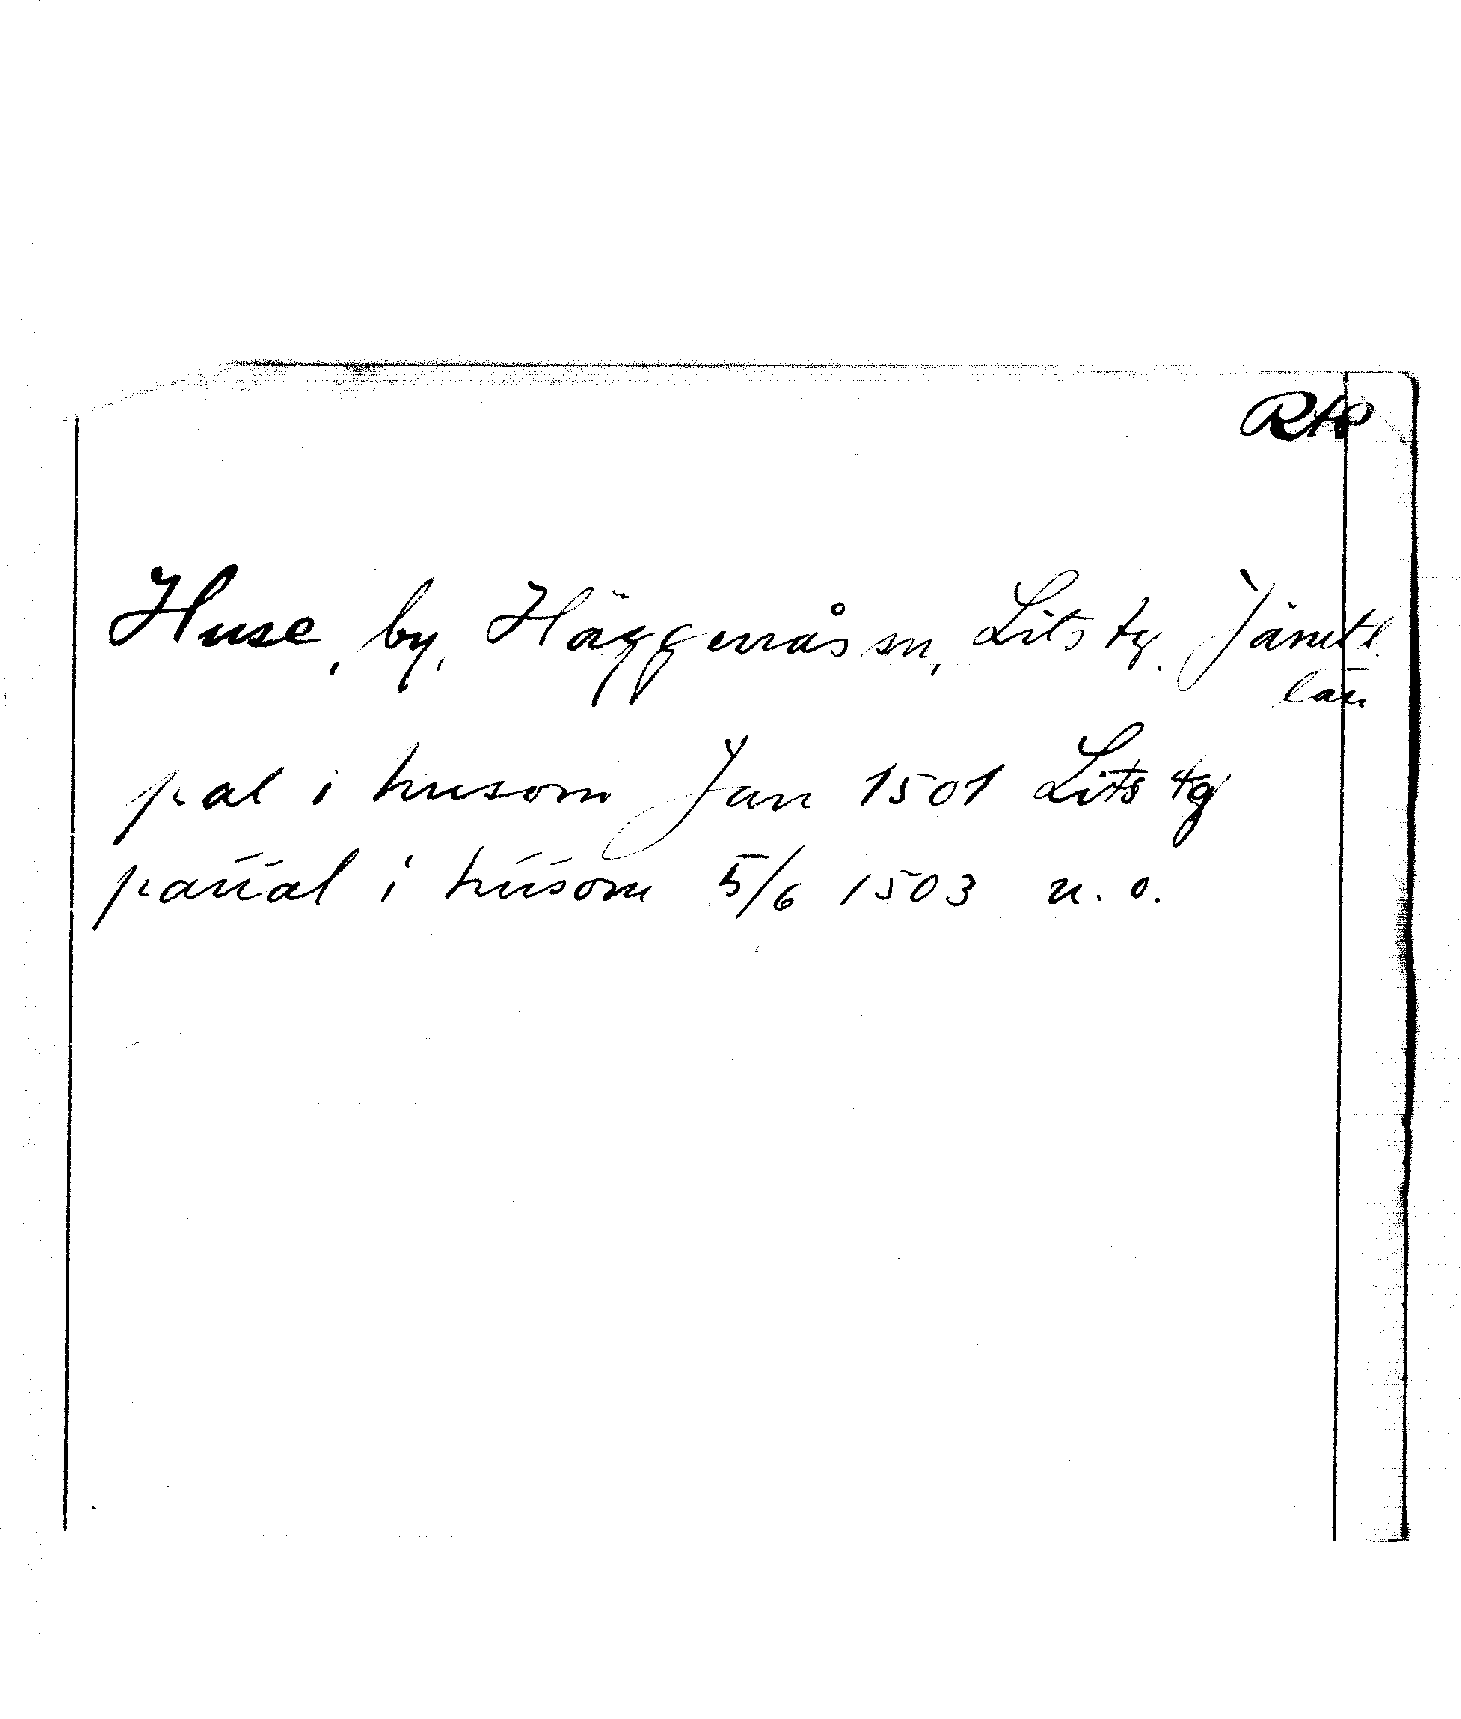 RAP
Huse, by, Häggenås sn, Lits tg. Jämtl.
län
pal i husom Jan 1501 Lits tg
paüal i hüsom 5/6 1503 u. o.